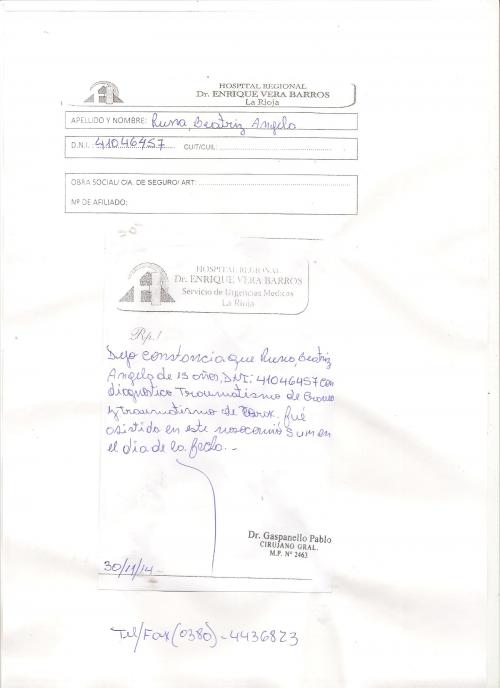 HOSPITAL REGIONAL
Dr. ENRIQUE VERA BARROS
La Rioja
APELLIDO Y NOMBRE: Russo, Beatriz Angela
D.N.I. 41046457 CUIT/CUIL:
OBRA SOCIAL/ C/A. DE SEGURO/ ART:
Nº DE AFILIADO:
HOSPITAL REGIONAL
Dr. ENRIQUE VERA BARROS
Servicio de Urgencias Medicas
La Rioja
Rp.!
Dejo constancia que Russo, Beatriz
Angela de 15 años, DNI: 41046457 con
diagnostico Traumatismo de Craneo
y traumatismo de Torax. fué
asistido en este nosocomio en
el dia de la fecha. -
Dr. Gaspanello Pablo
CIRUJANO GRAL.
M.P. Nº 2463
30/11/14 -
Tel/Fax (0380) - 4436823